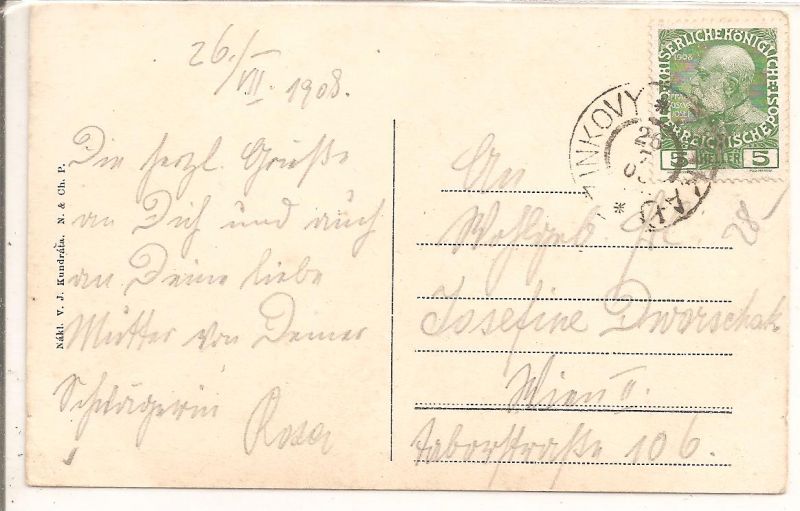 26./VII. 1908.
Die herzl. Grüße
an Dich und auch
an Deine liebe
Mutter von Deiner
Schwägerin
Rosa
An
Wohlgeb. 28
Josefine Dworschak
Wien II.
Taborstraße 106.
Nákl. V. J. Kundráta. N. & Ch. P.
KAISERLICHEKÖNIGLICHE
ÖSTERREICHISCHE POST
1908
5 HELLER 5
INKOVY
26